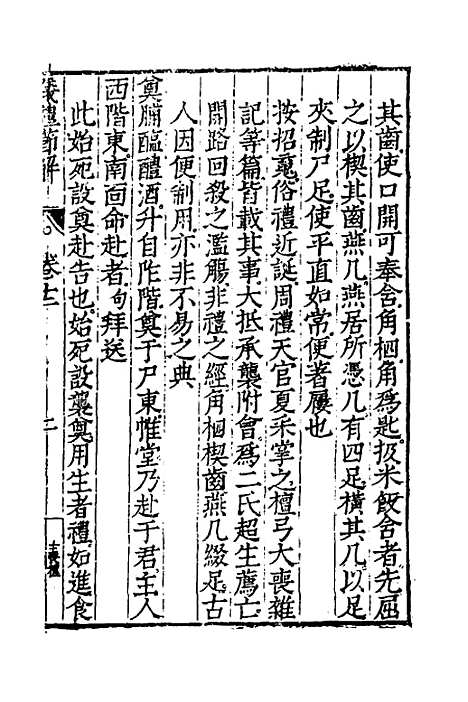 其齒使口開可奉含角柶角為匙扱米飯含者先屈
之以楔其齒燕几燕居所憑几有四足橫其几以足
夾制尸足使平直如常便著屨也
按招䰟俗禮近誕周禮天官夏采掌之檀弓大喪雜
記等篇皆載其事大抵承襲附會為二氏超生薦亡
開路回殺之濫觴非禮之經角柶楔齒燕几綴足古
人因便制用亦非不易之典
奠脯醢醴酒升自阼階奠于尸東帷堂乃赴于君主人
西階東南面命赴者句拜送
此始死設奠赴告也始死設襲奠用生者禮如進食
儀禮節解
卷十二